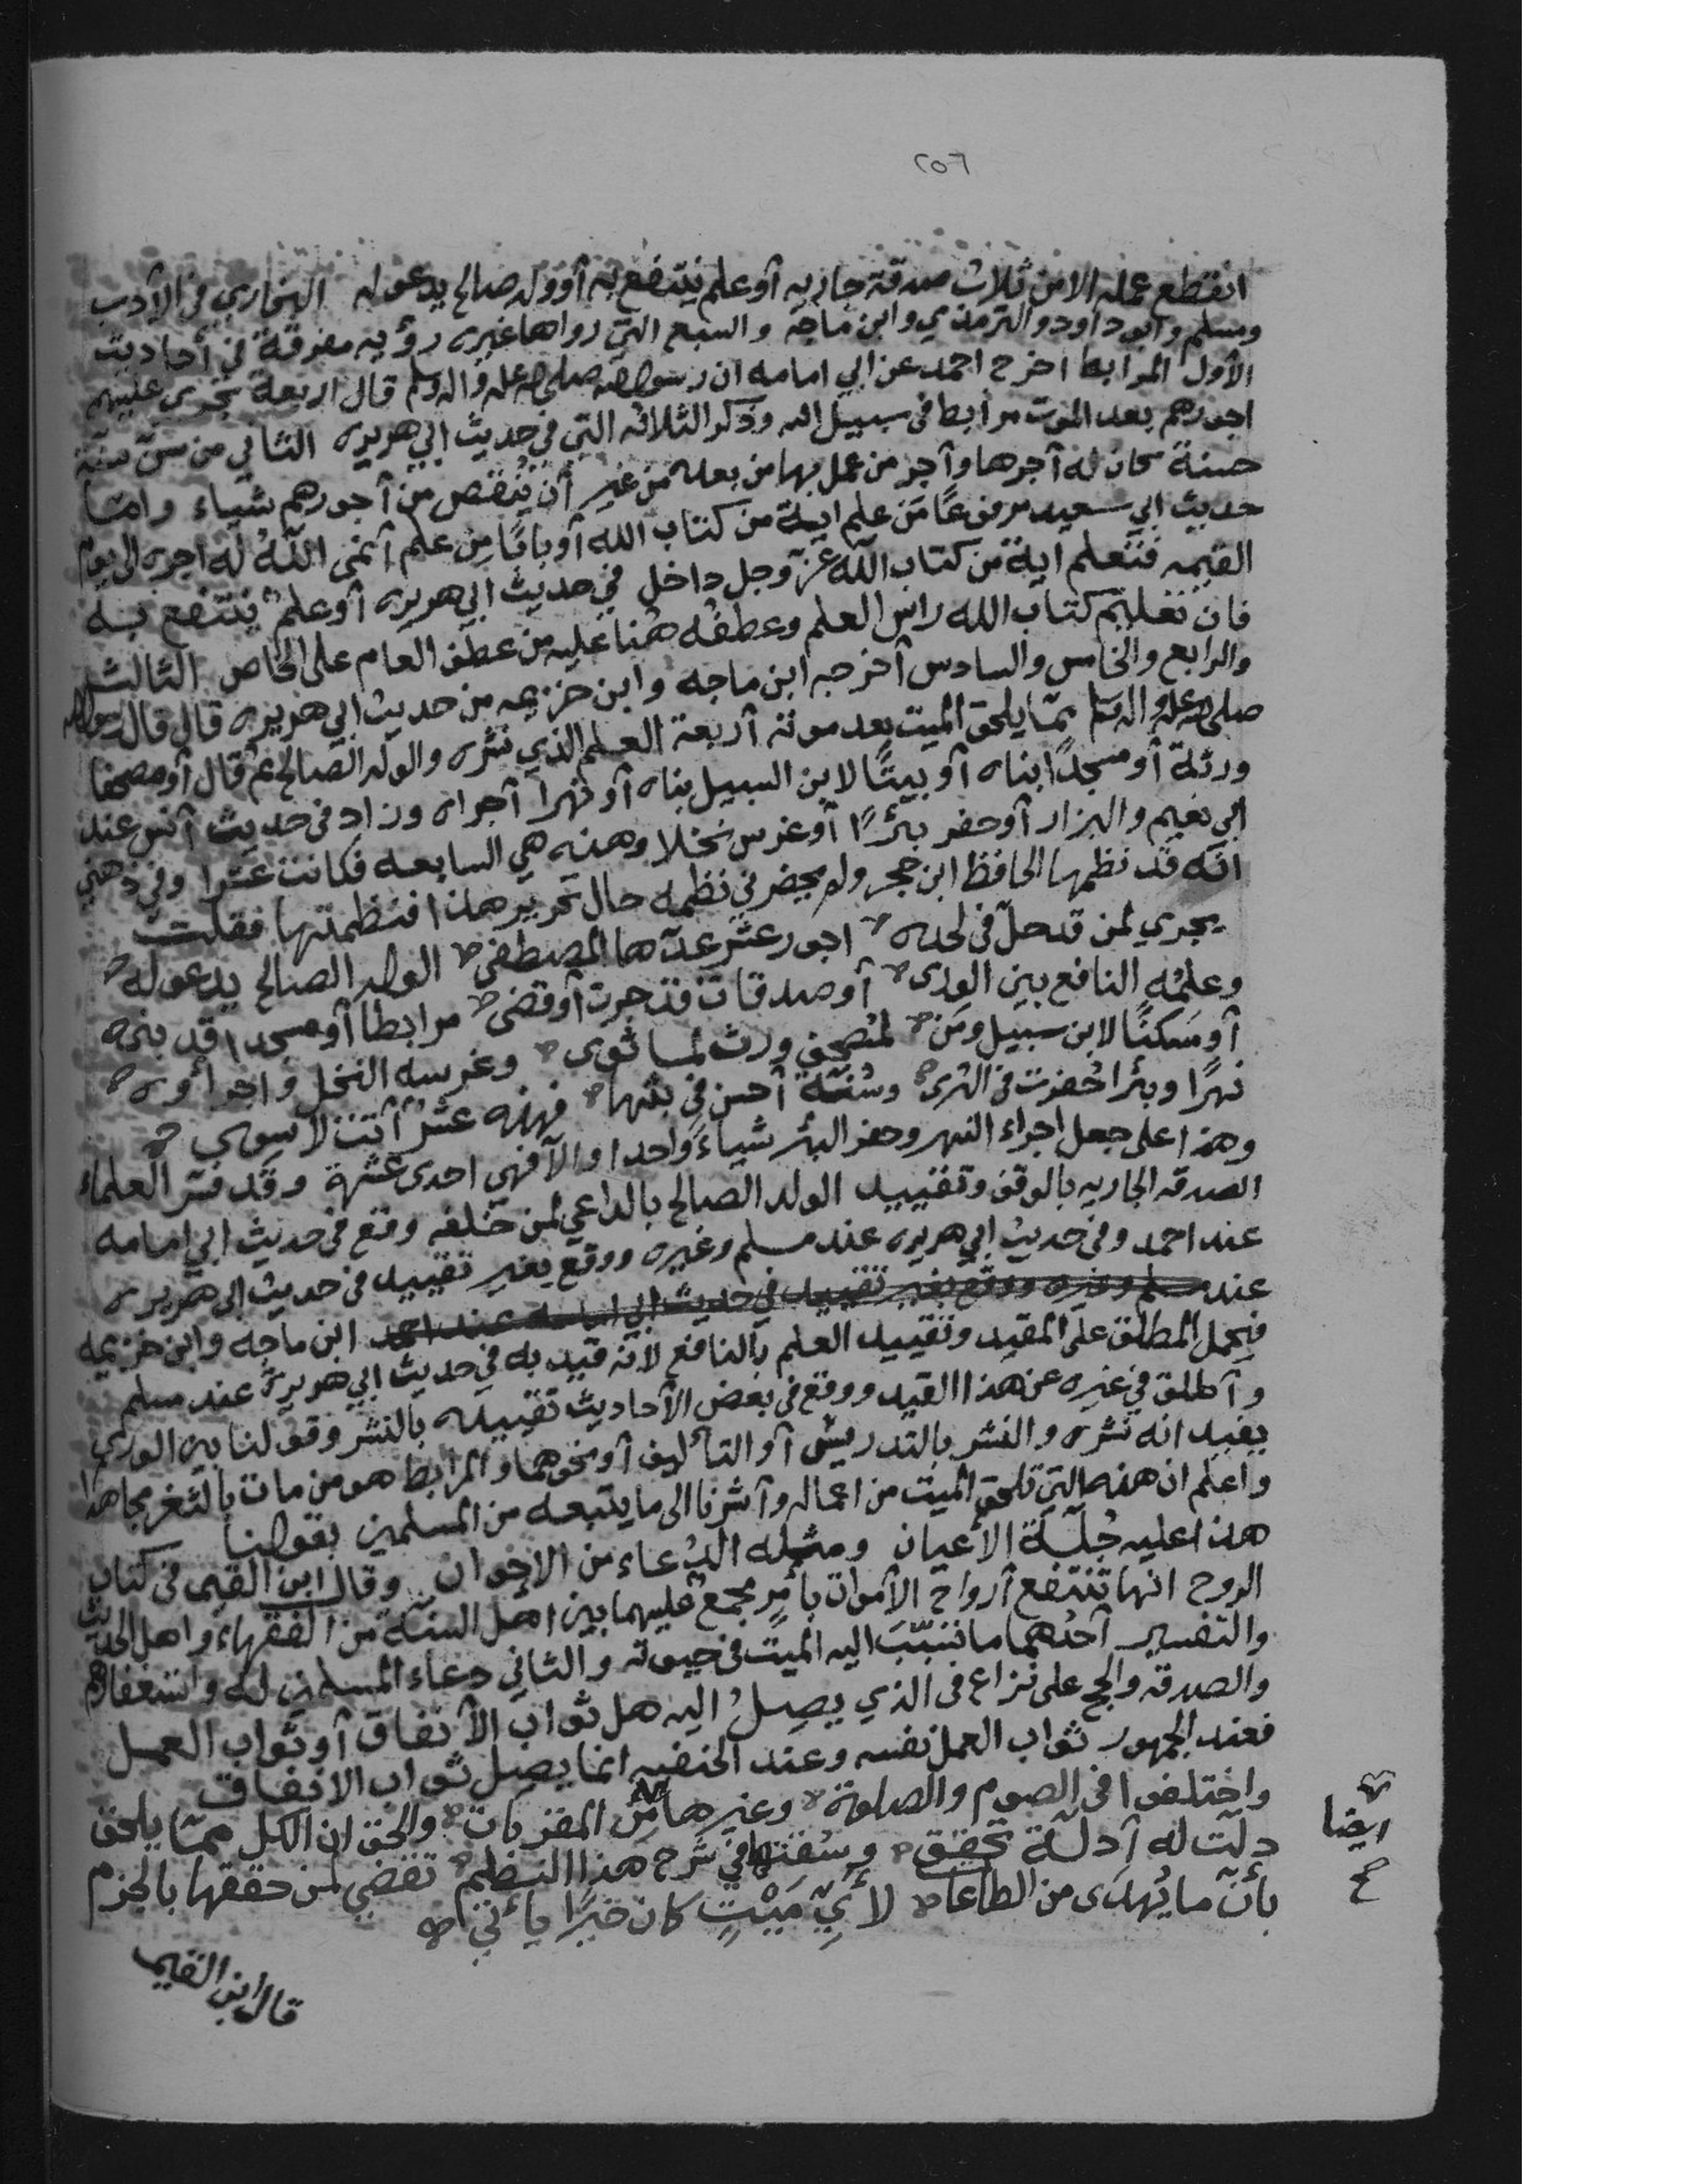 ٢٥٦
انقطع عمله الا من ثلاث صدقة جاريه أو علم ينتفع به أو ولد صالح يدعو له البخاري في الأدب
ومسلم وابو داود والترمذي وابن ماجه والسبع التي رواها غيره رؤيه مفرقة في أحاديث
الأول المرابط اخرج احمد عن ابي امامه ان رسول الله صلى الله عليه واله وسلم قال اربعة تجري عليهم
اجورهم بعد الموت مرابط في سبيل الله وذكر الثلاثه التي في حديث ابي هريره الثاني من سن سنة
حسنة كان له أجرها وأجر من عمل بها من بعده من غير أن ينقص من أجورهم شياء وامتا
حديث ابي سعيد مرفوعًا من علم اية من كتاب الله أو بابًا من علم أنمى اللهُ له اجره الى يوم
القيمه فتعلم اية من كتاب الله عز وجل داخل في حديث ابي هريره أو علم ينتفع به
فان تعليم كتاب الله راس العلم وعطفه هُنا عليه من عطف العام على الخاص الثالث
والرابع والخامس والسادس أخرجه ابن ماجه وابن خزيمه من حديث ابي هريره قال قال رسول الله
صلى الله عليه واله وسلم ممّا يلحق الميت بعد موته أربعة العلم الذي نشره والولد الصالح ثم قال أو مصحفا
ورثة أو مسجدًا بناه أو بيتًا لابن السبيل بناه أو نهرا أجراه وزاد في حديث أنس عند
ابي نعيم والبزار أو حفر بئرًا أو غرس نخلا وهذه هي السابعه فكانت عشرا وفي ذهني
انه قد نظمها الحافظ ابن حجر ولم يحضرني نظمه حال تحرير هذا فنظمتها فقلت
يجري لمن قد حلّ في لحده اجور عشر عدّها المصطفى الولد الصالح يدعو له
وعلمُه النافع بين الورى أو صدقات قد جرت أو قضى مرابطا أو مسجدا قد بنى
أو مسكنًا لابن سبيل ومن لمُصحف ورث لما ثوى وغرسه النخل واجرائه
نهرًا وبئرا حُفرت في الثرى وسُنّة أحسن في بثها فهذه عشرٌ أتت لا سوى
وهذا على جعل اجراء النهر وحفر البئر شياءً واحدا والا فهي احدى عشرة وقد فسر العلماء
الصدقه الجاريه بالوقف وتقييد الولد الصالح بالداعي لمن خلفه وقع في حديث ابي امامه
عند احمد وفي حديث ابي هريره عند مسلم وغيره ووقع بغير تقييد في حديث ابي هريره
عند مسلم وغيره ووقع بغير تقييد في حديث ابي امامه عند احمد ابن ماجه وابن خزيمه
فيحمل المطلق على المقيد وتقييد العلم بالنافع لأنه قيد به في حديث ابي هريرة عند مسلم
وأطلق في غيره عن هذا القيد ووقع في بعض الأحاديث تقييده بالنشر وقولنا بين الورى
يفيد انه نشره والنشر بالتدريس أو التأليف أو نحوهما والمرابط هو من مات بالثغر مجاهدا
واعلم ان هذه التي تلحق الميت من اعماله وأشرنا الى ما يتبعه من المسلمين بقولنا
هذا عليه جُلّة الأعيان ومثله الدُعاء من الاخوان وقال ابن القيم في كتاب
الروح انها تنتفع أرواح الأموات بأمرٍ مجمع عليهما بين اهل السنة من الفقهاء واهل الحديث
والتفسير أحدُهما ما تسبّبَ اليه الميّت في حيوته والثاني دعاء المسلمين له واستغفارهم
والصدقه والحج على نزاع في الذي يصِلُ اليه هل ثواب الأنفاق أو ثواب العمل
فعند الجمهور ثواب العمل نفسه وعند الحنفيه انما يصِل ثواب الانفاق
واختلفوا في الصوم والصلوة وغيرها من المقربات والحق ان الكل ممّا يلحق
دلّت له أدلّة تحقق وسُقتها في شرح هذا النظم تقضي لمن حققها بالجزم
بأنّ ما يُهدَى من الطاعات لأَيِّ مَيْتٍ كان خيرًا يأتي
ايضا
صح
قال ابن القيم